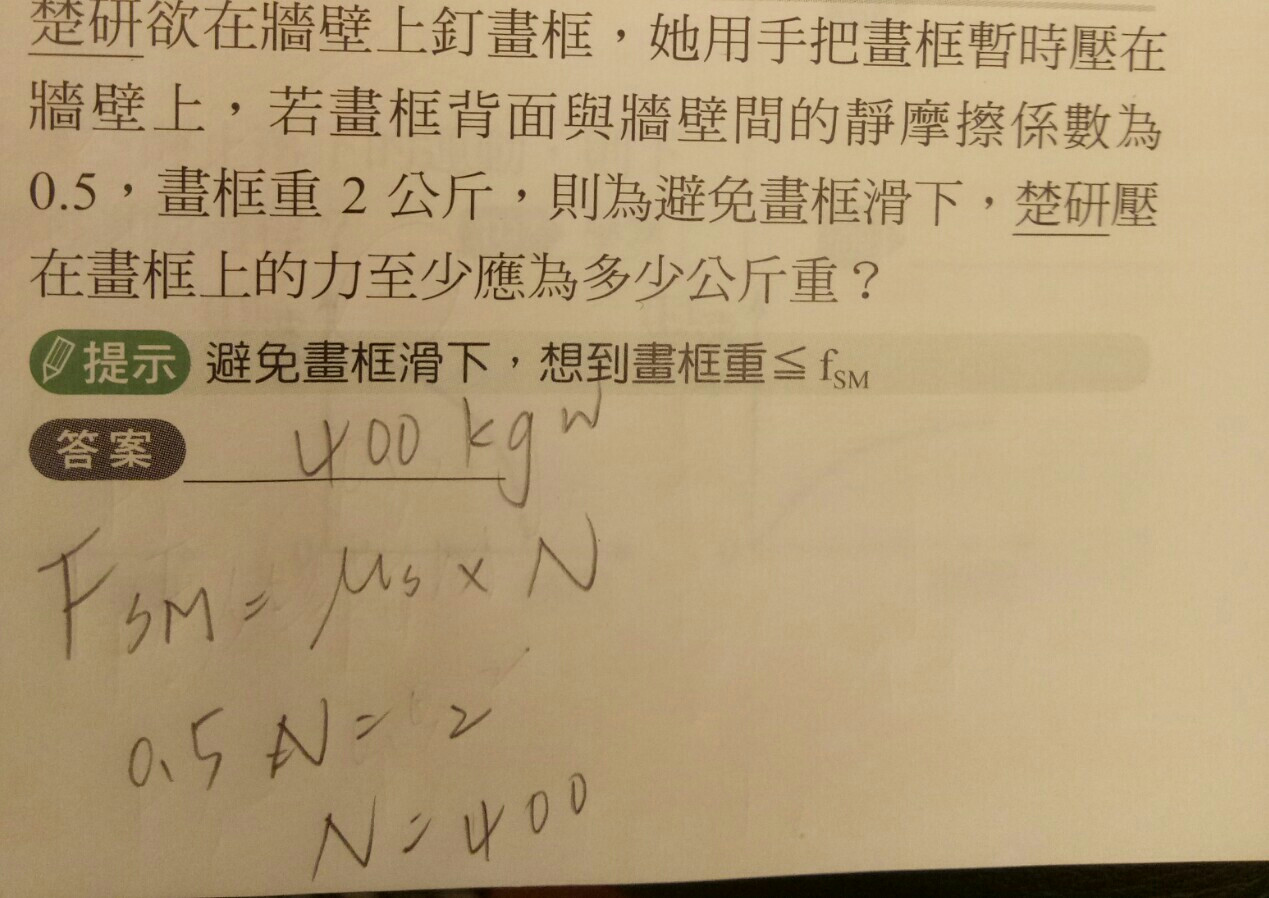 楚研欲在牆壁上釘畫框，她用手把畫框暫時壓在
牆壁上，若畫框背面與牆壁間的靜摩擦係數為
0.5，畫框重 2 公斤，則為避免畫框滑下，楚研壓
在畫框上的力至少應為多少公斤重？
提示 避免畫框滑下，想到畫框重≦ fSM
答案 400 kgw
FSM = μs × N
0.5 N = 2
N = 400